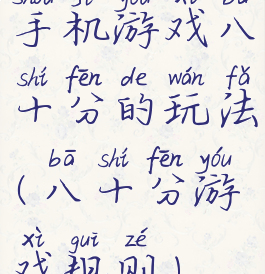 shǒu jī yóu xì bā
手机游戏八
shí fēn de wán fǎ
十分的玩法
bā shí fēn yóu
(八十分游
xì guī zé
戏规则)